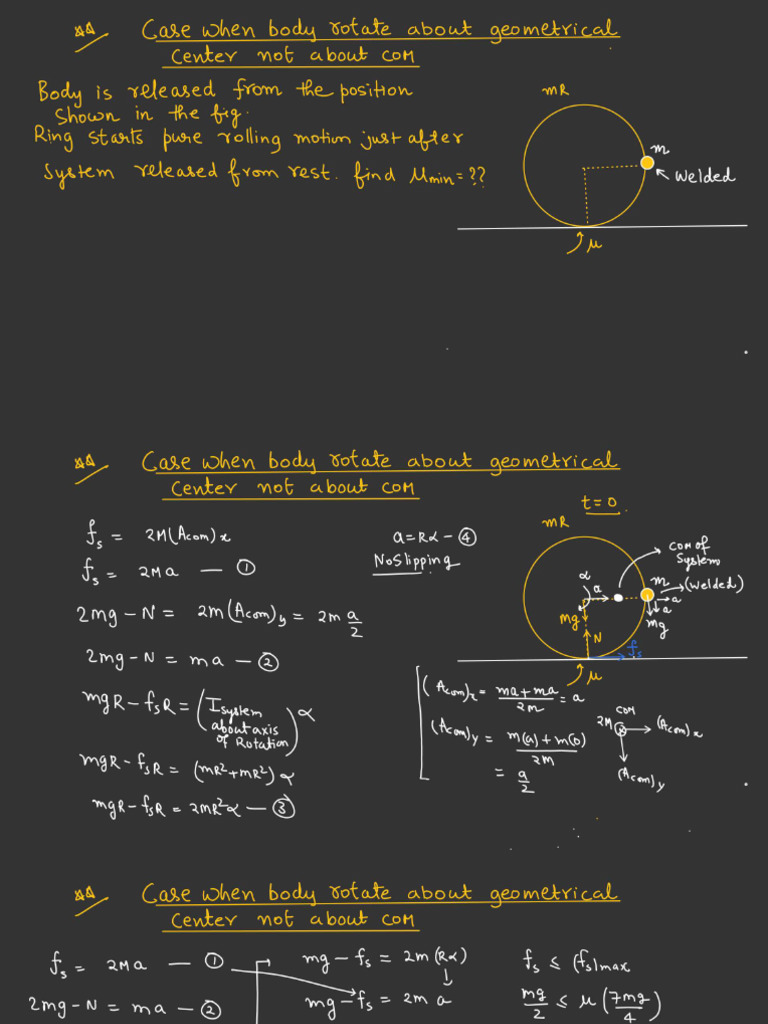 Case when body rotate about geometrical
Center not about COM
Body is released from the position
Shown in the fig.
Ring starts pure rolling motion just after
System released from rest. find μmin = ??
mR
m
Welded
μ
Case when body rotate about geometrical
Center not about COM
t=0
mR
fs = 2M(Acom)x
a = Rα - ④
No Slipping
fs = 2Ma — ①
2mg - N = 2m(Acom)y = 2m a/2
2mg - N = ma - ②
mgR - fsR = (Isystem about axis of Rotation) α
mgR - fsR = (mR²+mR²) α
mgR - fsR = 2mR²α — ③
COM of
System
m
(Welded)
α
a
a
a
mg
mg
N
fs
μ
(Acom)x = ma+ma/2m = a
(Acom)y = m(a)+m(0)/2m
= a/2
COM
2M
(Acom)x
(Acom)y
Case when body rotate about geometrical
Center not about COM
fs = 2Ma — ①
mg - fs = 2m(Rα)
fs ≤ (fs)max
2mg - N = ma - ②
mg - fs = 2m a
mg/2 ≤ μ(7mg/4)